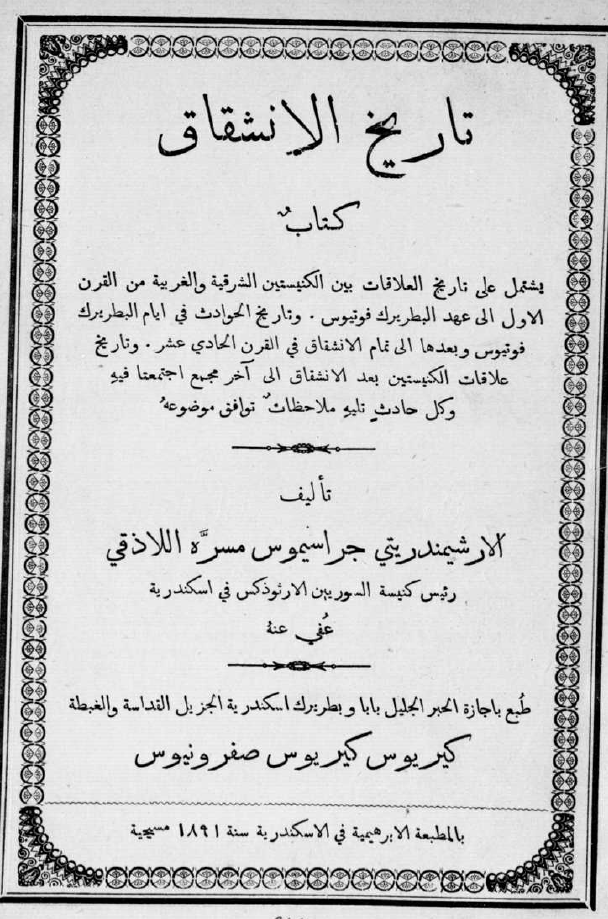 تاريخ الانشقاق
كتابٌ
يشتمل على تاريخ العلاقات بين الكنيستين الشرقية والغربية من القرن
الاول الى عهد البطريرك فوتيوس . وتاريخ الحوادث في ايام البطريرك
فوتيوس وبعدها الى تمام الانشقاق في القرن الحادي عشر . وتاريخ
علاقات الكنيستين بعد الانشقاق الى آخر مجمع اجتمعتا فيهِ
وكل حادثٍ تليهِ ملاحظاتٌ توافق موضوعهُ
تأليف
الارشيمندريتي جراسيموس مسرَّه اللاذقي
رئيس كنيسة السوريين الارثوذكس في اسكندرية
عُفي عنهُ
طُبع باجازة الحبر الجليل بابا وبطريرك اسكندرية الجزيل القداسة والغبطة
كيريوس كيريوس صفرونيوس
بالمطبعة الابرهيمية في الاسكندرية سنة ١٨٩١ مسيحية